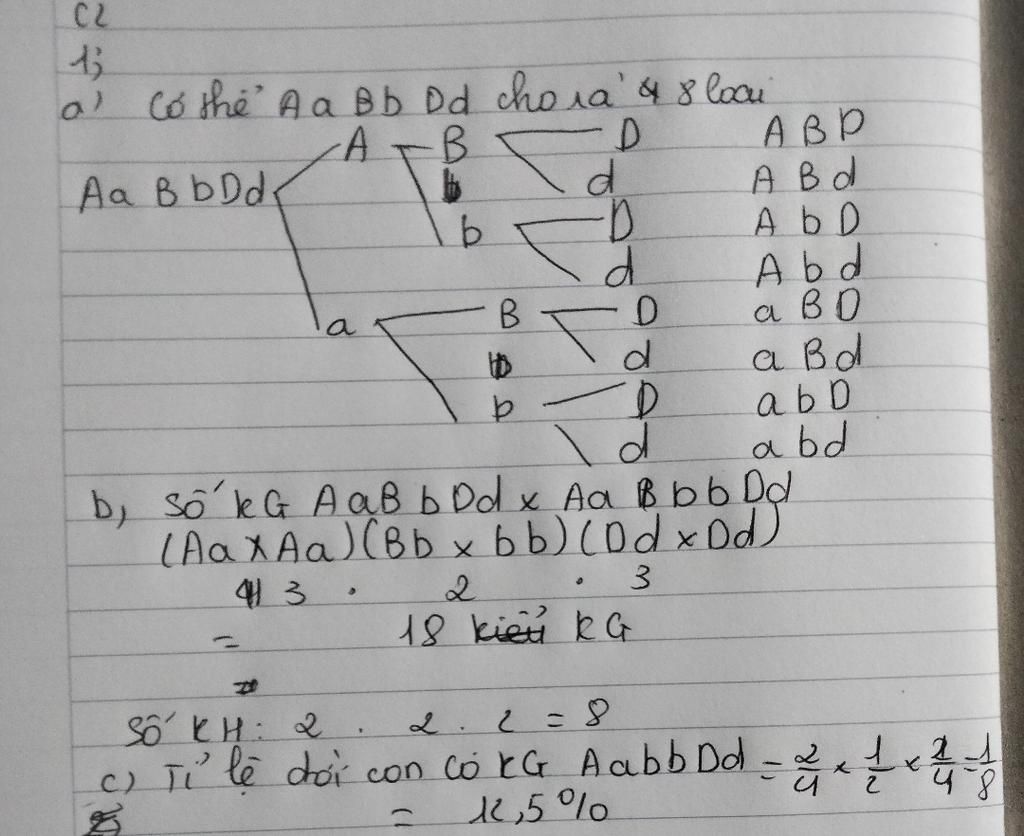 C2
1;
a) Có thể AaBbDd cho ra 8 loại
A B D D ABD
AaBbDd d ABd
b D AbD
d Abd
a B D aBD
d aBd
b D abD
d abd
b, Số KG AaBbDd x AabbDd
(Aa x Aa)(Bb x bb)(Dd x Dd)
3 . 2 . 3
= 18 kiểu KG
=
Số KH: 2 . 2 . 2 = 8
c) Tỉ lệ đời con có KG AabbDd = 2/4 x 1/2 x 2/4 = 1/8
= 12,5%